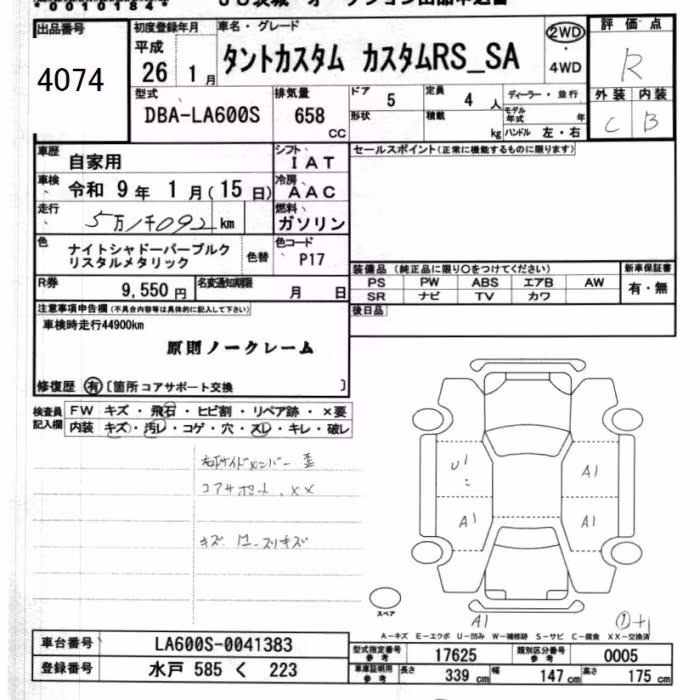 出品番号
4074
初度登録年月
平成
26 1月
車名・グレード
タントカスタム カスタムRS_SA
2WD
・
4WD
評価点
R
外装 内装
C B
型式
DBA-LA600S
排気量
658
CC
ドア 5
定員 4 人
ディーラー・並行
形状
積載 kg
モデル年式 年
ハンドル 左・右
車歴 自家用
シフト
IAT
セールスポイント(正常に機能するものに限ります)
車検 令和 9 年 1 月(15 日)
冷房
AAC
走行 5万1千092 km
燃料
ガソリン
色 ナイトシャドーパープルク
リスタルメタリック
色替
色コード
P17
R券 9,550 円
名変通知期限 月 日
装備品(純正品に限り○をつけてください)
新車保証書
PS PW ABS エアB AW
SR ナビ TV カワ
有・無
後日品
注意事項申告欄(不具合内容等は具体的に記入して下さい)
車検時走行44900km
原則ノークレーム
修復歴 有 〔箇所 コアサポート交換 〕
検査員
記入欄
FW キズ・飛石・ヒビ割・リペア跡・×要
内装 キズ・汚レ・コゲ・穴・スレ・キレ・破レ
右サイドメンバー 歪
コアサポート、XX
キズ
スリキズ
U1
A1
A1
A1
A1
スペア
A-キズ E-エクボ U-凹み W-補修跡 S-サビ C-腐食 XX-交換済
車台番号 LA600S-0041383
登録番号 水戸 585 く 223
型式指定番号
参考
17625
類別区分番号
参考
0005
車庫証明用
参考
長さ 339 cm 幅 147 cm 高さ 175 cm